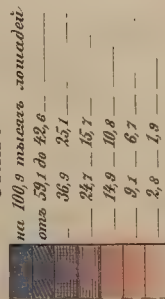 на 100,9 тысячъ лошадей
отъ 59,1 до 42,6
„ 36,9 — 25,1
— 24,7 — 15,7
— 14,9 — 10,8
— 9,1 — 6,7
— 2,8 — 1,9